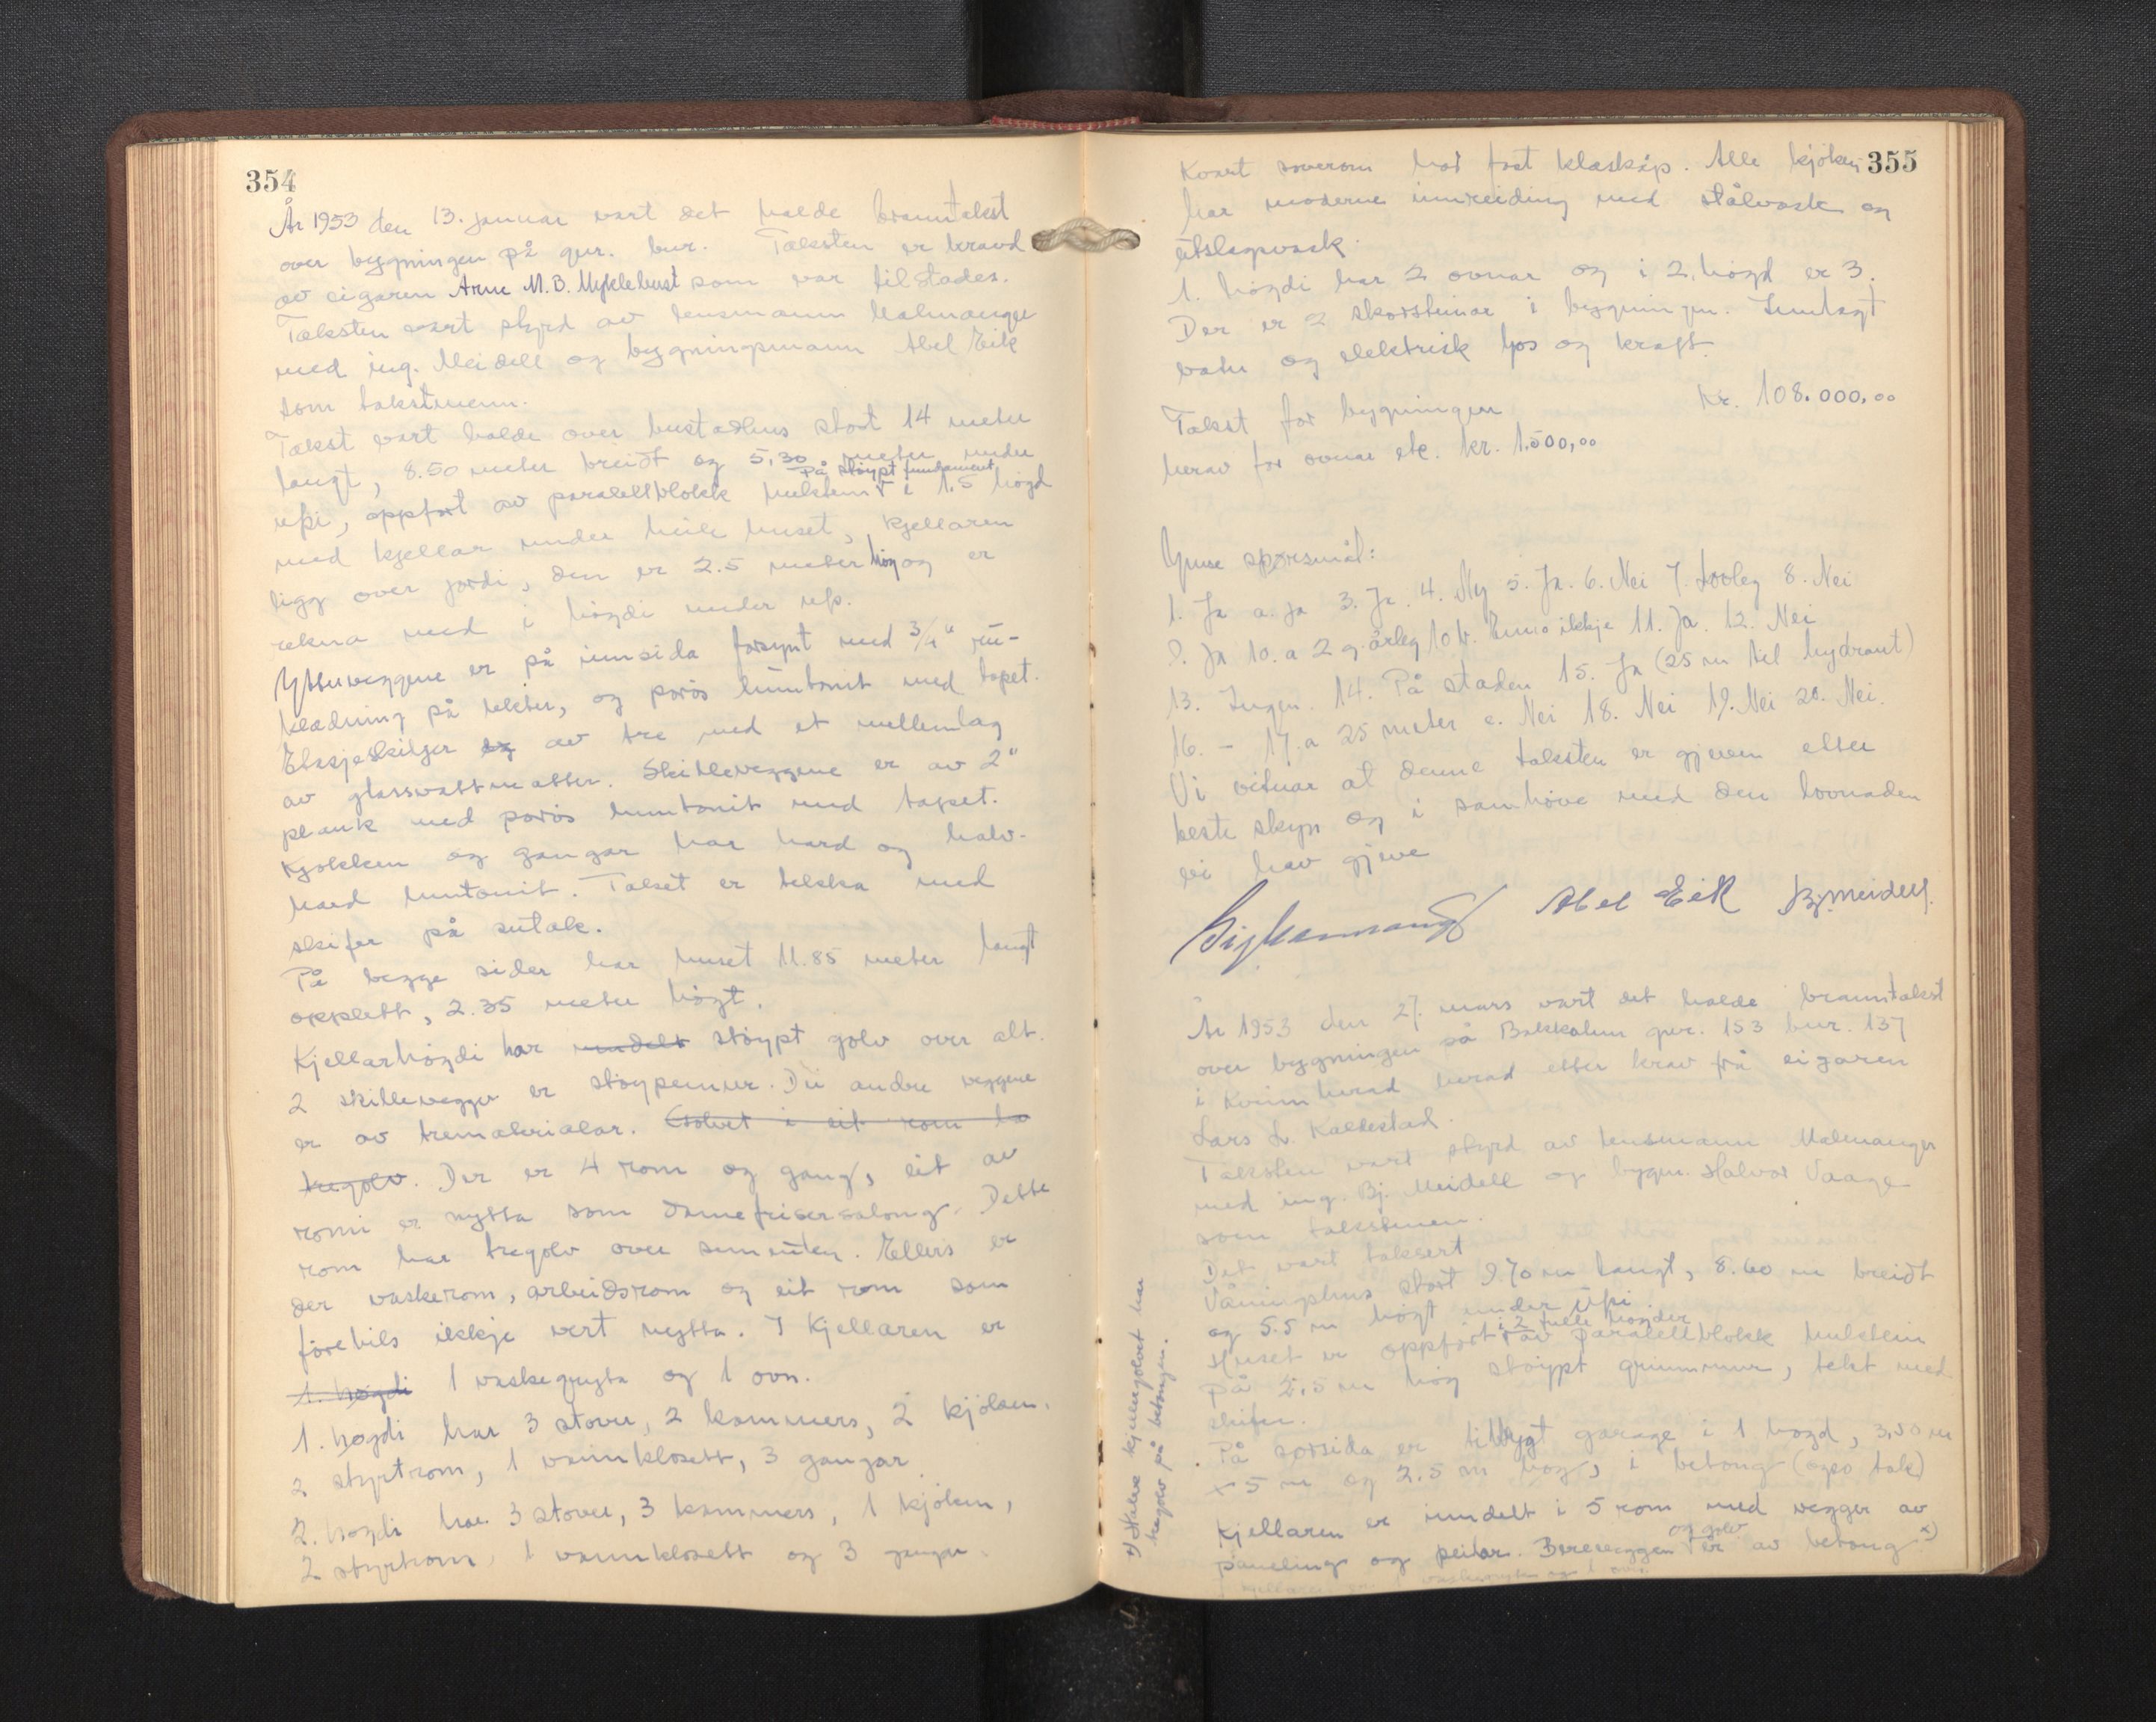 354
År 1953 den 13. januar vart det halde branntakst
over bygningen på gnr. bnr. Taksten er kravd
av eigaren Arne M. B. Myklebust som var tilstades.
Taksten vart styrd av lensmann Malmanger
med ing. Meidell og bygningsmann Abel Eik
som takstmenn.
Takst vart halde over bustadhus stort 14 meter
langt, 8.50 meter breidt og 5,30 meter under
På støypt fundament
ufsi, oppført av paralellblokk hulstein i 1.5 høgd
med kjellar under heile huset, kjellaren
ligg over jordi, den er 2.5 meter høg og er
rekna med i høgdi under ufs.
Ytterveggene er på innsida forsynt med 3/4" ru-
kledning på lekter, og porøs huntonit med tapet.
Etasjeskiljer er av tre med et mellemlag
av glassvattmatter. Skilleveggene er av 2"
plank med porøs huntonit med tapet.
Kjøkken og gangar har hard og halv-
hard huntonit. Taket er tekka med
skifer på sutak.
På begge sider har huset 11.85 meter langt
opplett, 2.35 meter høgt.
Kjellarhøgdi har inndelt støypt golv over alt.
2 skillevegger er støypemur. Dei andre veggene
er av trematerialar. Golvet i eit rom ha
tregolv. Der er 4 rom og gang, eit av
romi er nytta som damefrisersalong. Dette
rom har tregolv over sementen. Ellers er
der vaskerom, arbeidsrom og eit rom som
førebils ikkje vert nytta. I kjellaren er
1. høgdi 1 vaskegryta og 1 ovn.
1. høgdi har 3 stover, 2 kammers, 2 kjøken,
2 styrtrom, 1 vannklosett, 3 gangar
2. høgdi har 3 stover, 3 kammers, 1 kjøken,
2 styrtrom, 1 vannklosett og 3 gangar.
355
Kvart soverom har fast kleskåp. Alle kjøken
har moderne innreiding med stålvask og
utslagsvask.
1. høgdi har 2 ovnar og i 2. høgd er 3.
Der er 2 skorsteinar i bygningen. Innlagt
vatn og elektrisk ljos og kraft.
Takst for bygningen kr. 108.000,00
herav for ovnar etc. kr. 1.500,00
Ymse spørsmål:
1. Ja a. ja 3. Ja. 4. Nei 5. Ja. 6. Nei 7. Lovleg 8. Nei
9. Ja 10. a 2 g. årleg 10 b. Enno ikkje 11. Ja. 12. Nei
13. Ingen. 14. På staden 15. Ja (25 m til hydrant)
16. - 17. a 25 meter c. Nei 18. Nei 19. Nei 20. Nei.
Vi vitnar at denne taksten er gjeven etter
beste skyn og i samhøve med den lovnaden
vi hav gjeve
Abel Eik Bj. Meidell.
År 1953 den 27. mars vart det halde branntakst
over bygningen på Bakkatun gnr. 153 bnr. 137
i Kvinnherad herad etter krav frå eigaren
Lars L. Kaldestad.
Taksten vart styrd av lensmann Malmanger
med ing. Bj. Meidell og bygm. Halvor Vaage
som takstmenn.
Det vart taksert
Våningshus stort 9.70 m langt, 8.60 m breidt
og 5.5 m høgt under ufsi
i 2 fulle høgder
Huset er oppført av paralellblokk hulstein
på 2,5 m høg støypt grunnmur, tekt med
skifer.
På sørsida er tilbygt garage i 1 høgd, 3,50 m
x 5 m og 2.5 m høg, i betong (også tak)
Kjellaren er inndelt i 5 rom med vegger av
og golv
paneling og peilar. Bereveggen er av betong x)
Kjellaren 1 vaskegryta og 1 ovn.
x) Halve kjellergolvet har
tregolv på betongen.